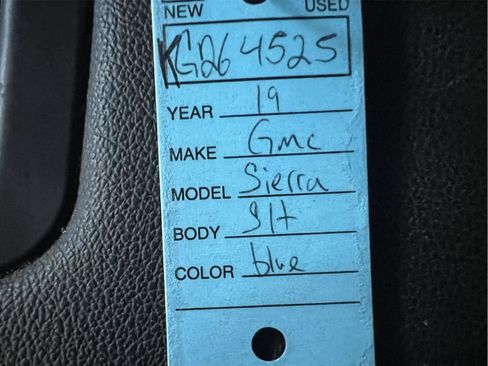 NEW USED
KG264525
YEAR 19
MAKE Gmc
MODEL Sierra
BODY Slt
COLOR blue